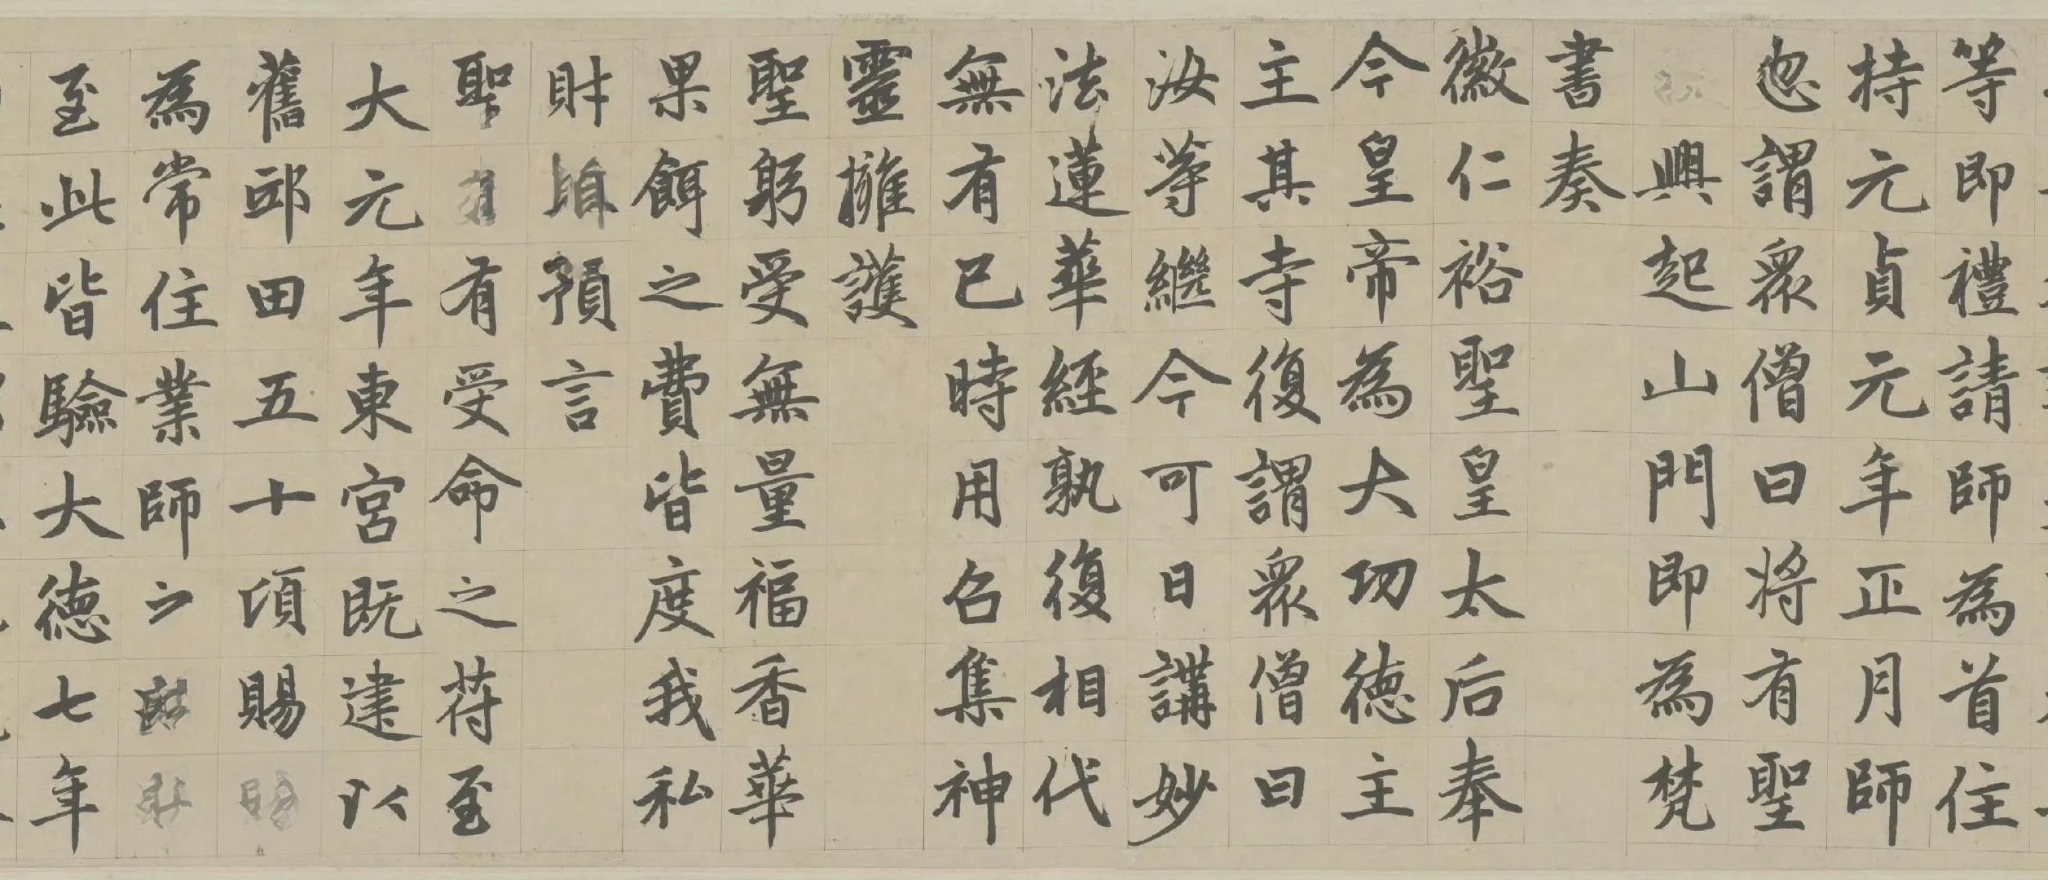 等即禮請師為首住
持元貞元年正月師
忽謂眾僧曰將有聖
興起山門即為梵
書奏
徽仁裕聖皇太后奉
今皇帝為大功德主
主其寺復謂眾僧曰
汝等繼今可日講妙
法蓮華經孰復相代
無有已時用召集神
靈擁護
聖躬受無量福香華
果餌之費皆度我私
財預言
聖有受命之符至
大元年東宮既建以
舊邸田五十頃賜
為常住業師
至此皆驗大德七年